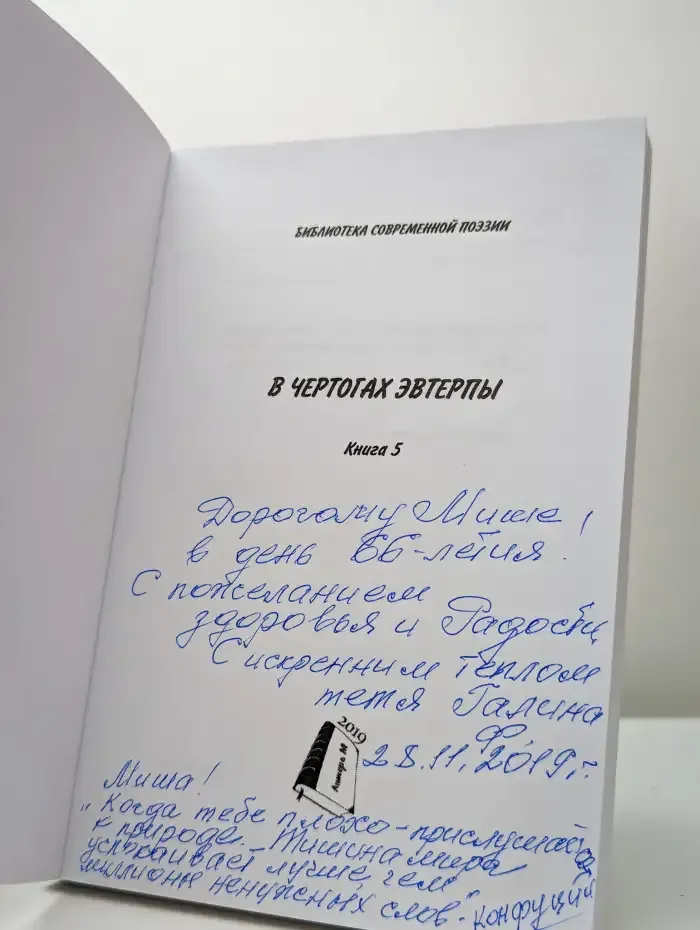 БИБЛИОТЕКА СОВРЕМЕННОЙ ПОЭЗИИ
В ЧЕРТОГАХ ЭВТЕРПЫ
Книга 5
Дорогому Мише!
в день 66-летия!
С пожеланием
здоровья и Радости
С искренним теплом
тетя Галина
Ф.
28.11.2019г.
2019
Миша!
„Когда тебе плохо - прислушайся
к природе. Тишина мира
успокаивает лучше, чем
миллионы ненужных слов"
Конфуций